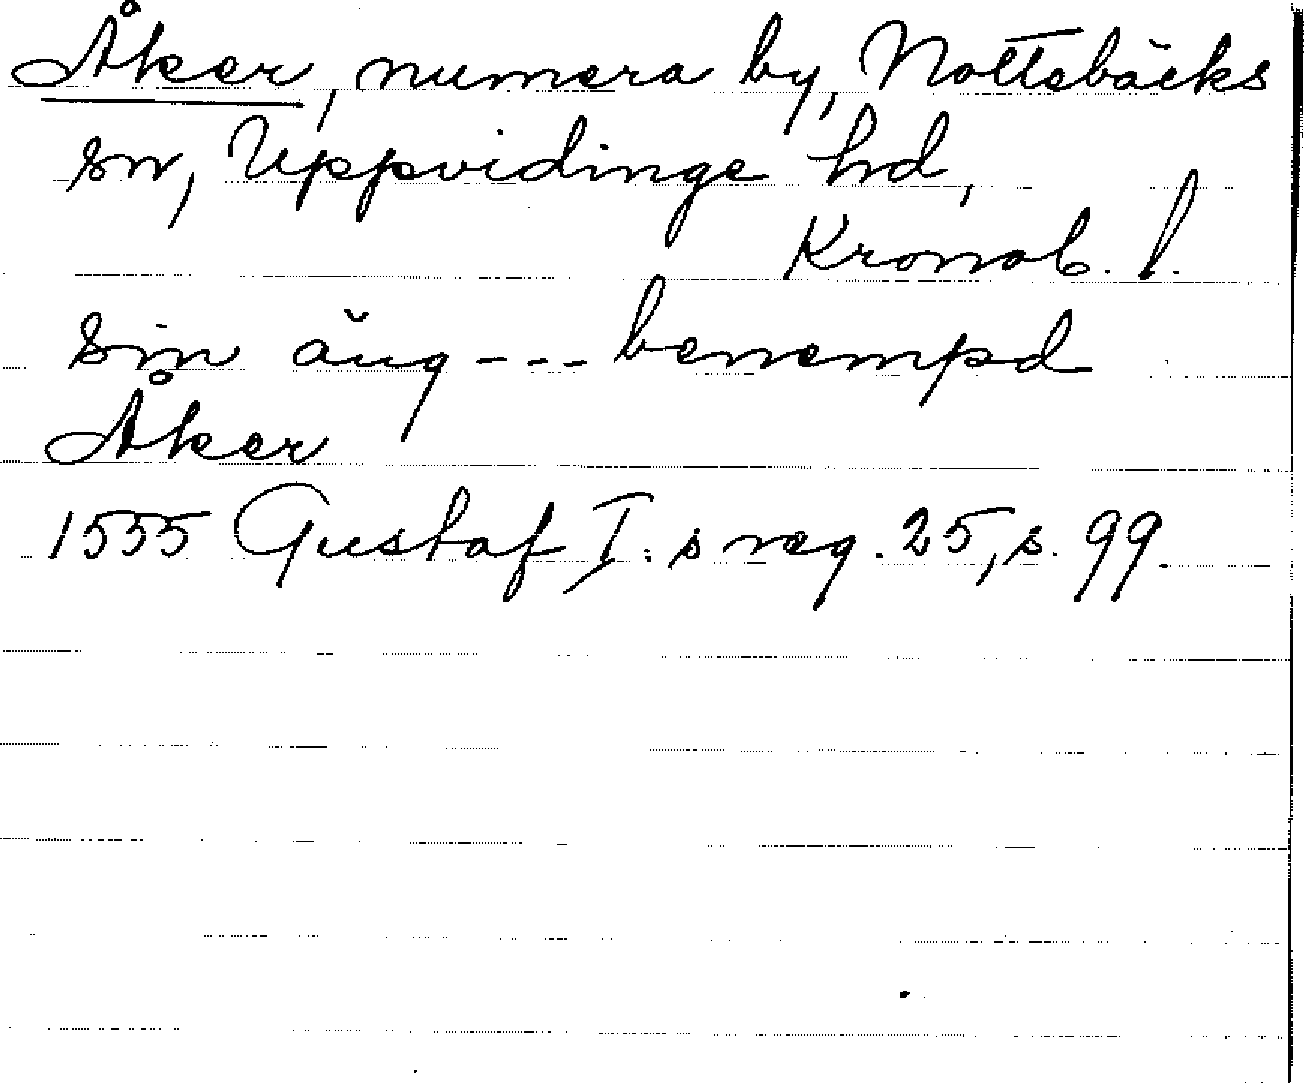 Åker, numera by, Nottebäcks
sn, Uppvidinge hd,
Kronob. l.
sin äng --- benempd
Åker
1555 Gustaf I:s reg. 25, s. 99.